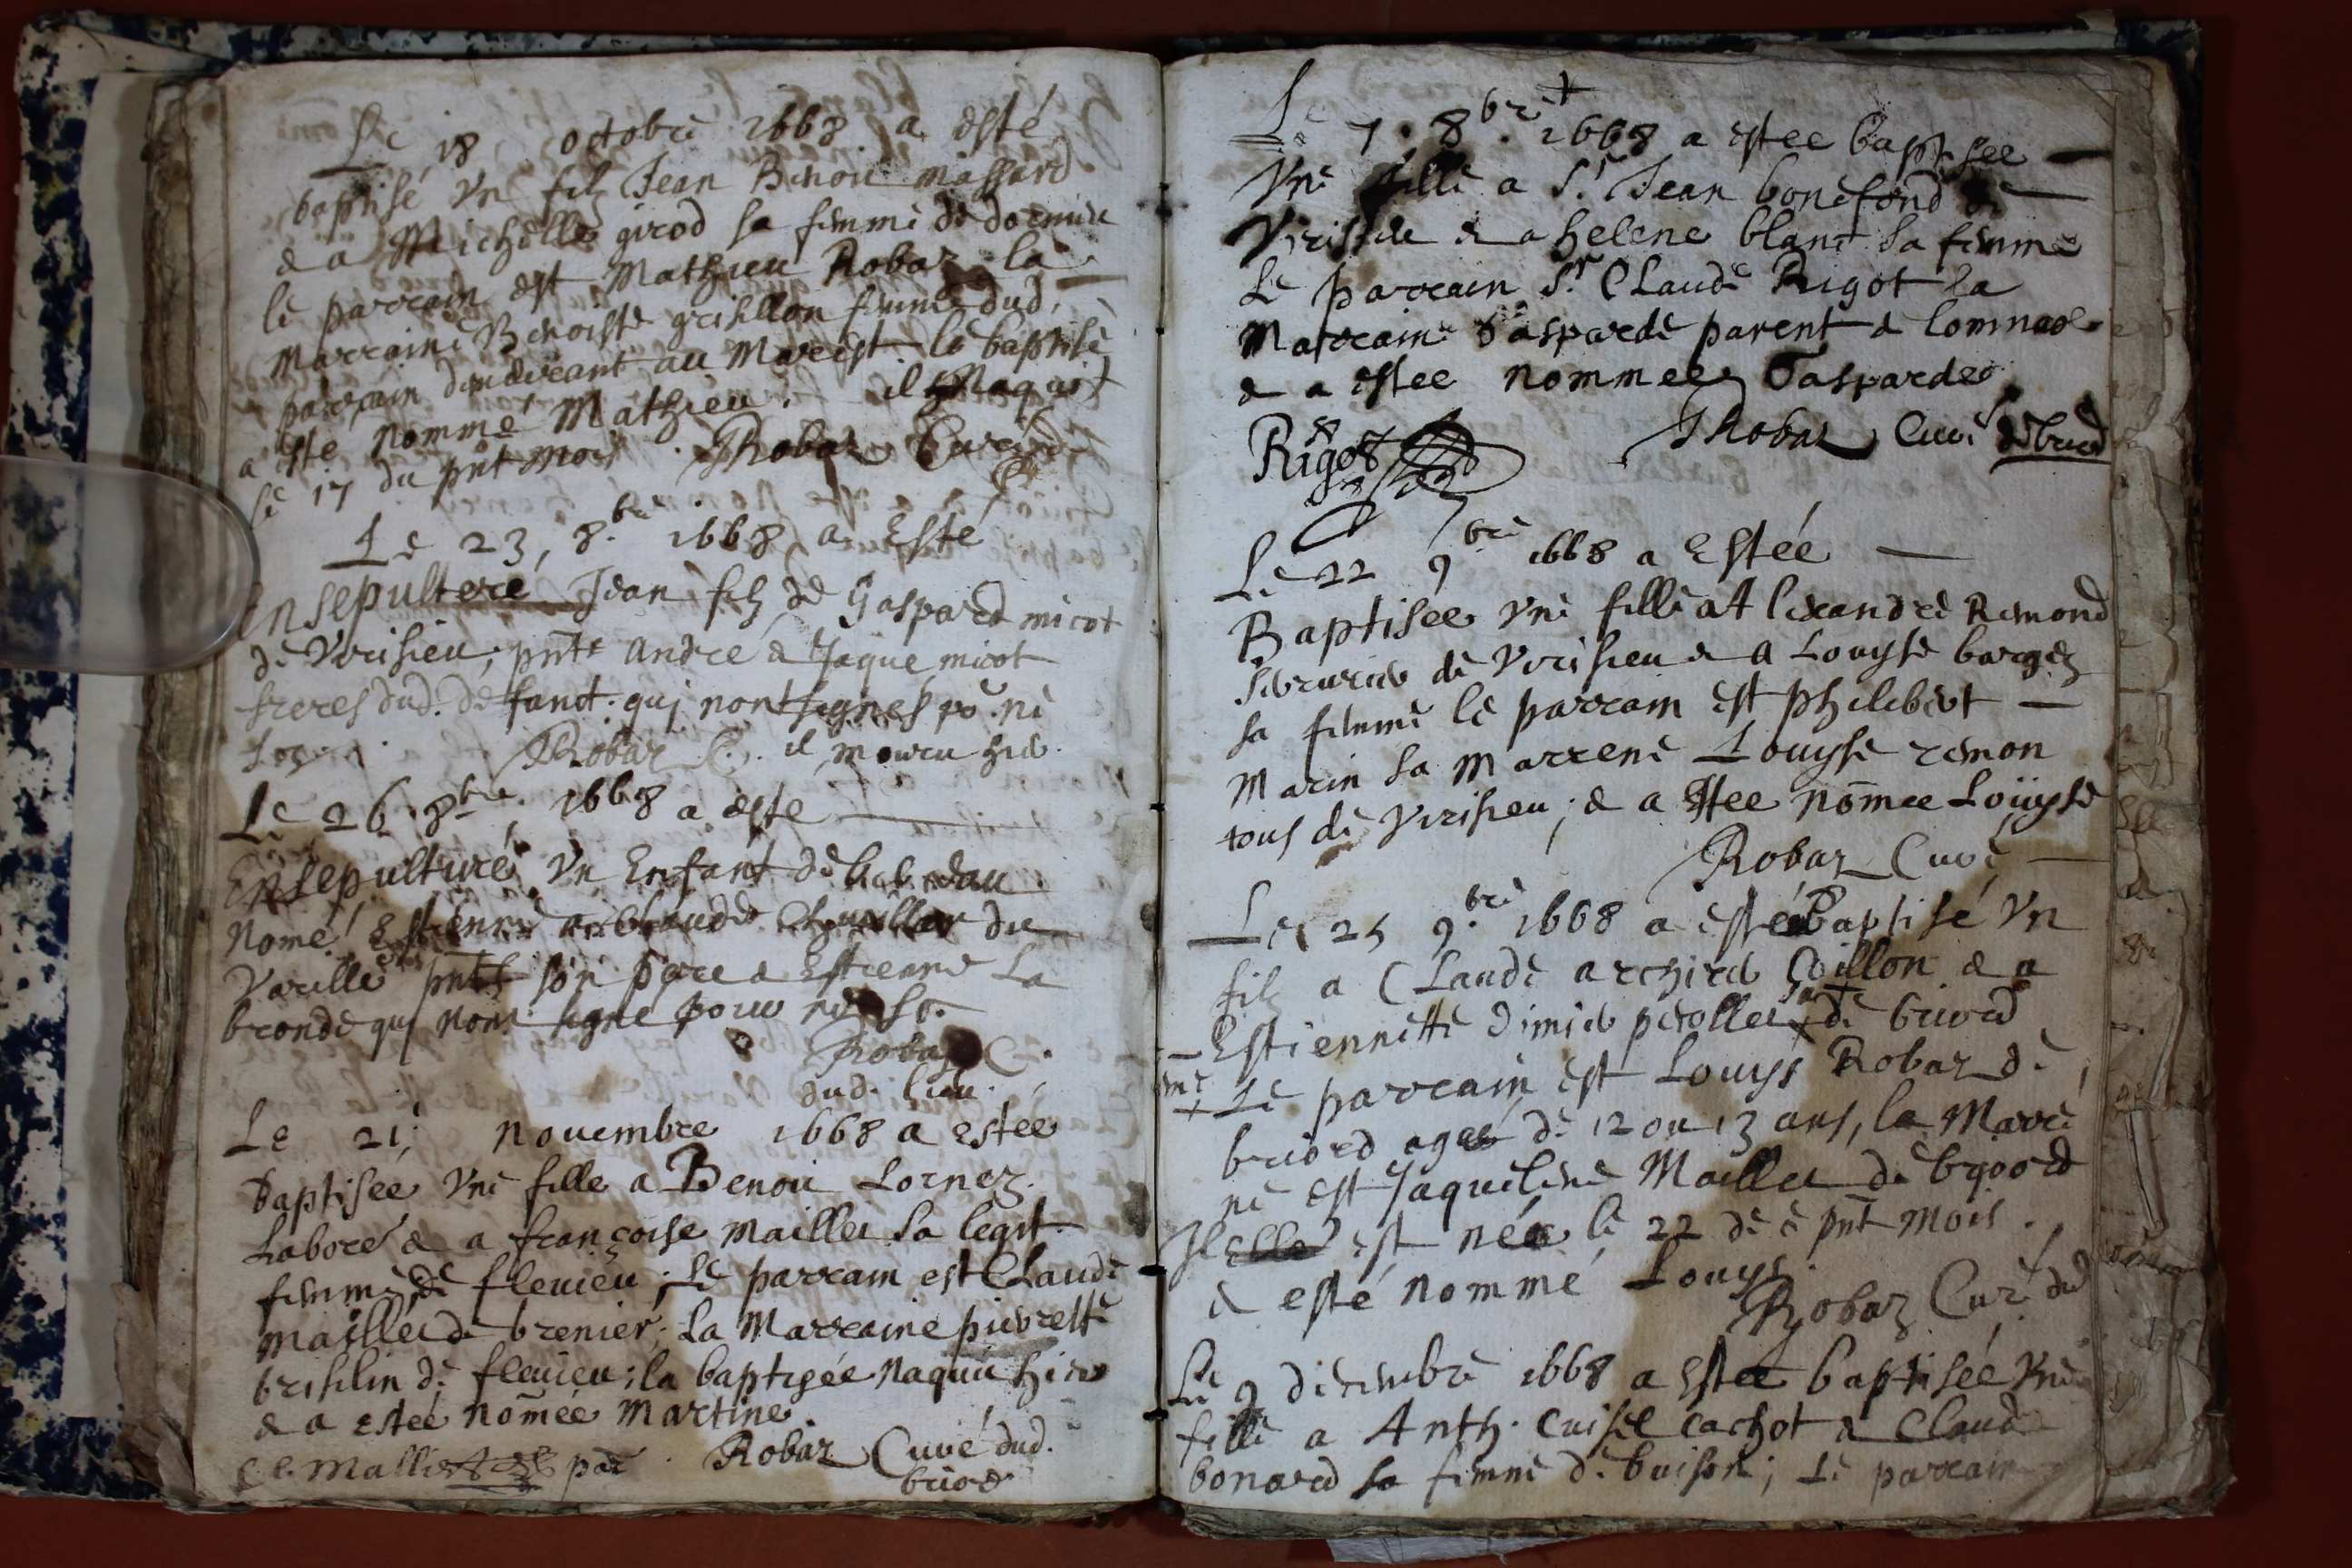 Le 18 octobre 1668 a esté
baptisé vn filz Jean Benoit massard
& a Michelle girod sa femme de
le parrain est Mathieu Robaz la
Marraine Benoiste grisillon femme dud.
parrain au Marest le baptisé
a este nommé Mathieu. il Naquit
le 17 du pnt mois. Robaz Curé
Le 23, 8.bre 1668 a Esté
Ensepulteré Jean filz de Gaspard micot
de Virisieu; pnte André & Jaque micot
freres dud. defunct. quj nont signes po. ne
Robaz C. il mouru hier.
Le 26. 8bre. 1668 a este
Ensepulturé vn Enfant de
Nomé Estienne a du
Varille pnts son pere & Estienne La
bronde quj nont signe pour ne
Robaz C.
dud. lieu.
Le 21; Nouembre 1668 a estee
Baptisée vne fille a Benoit Lornez.
Labore & a françoise Maillet sa legit.
femme de fleuieu; Le parrain est Claude
Maillet de brenier; La Marraine pierrette
brisilin de fleuieu; la baptisée Naquit hier
& a esteé noṁée Martine.
C. Malliet par Robaz Curé dud.
briord
Le 7. 8bre. 1668 a estee baptisee
vne fille a Sr. Jean bonefond de
Virisieu & a helene blanc sa femme
Le parrain Sr. CLaude Rigot la
Marraine Gasparde parent de lomnas
& a estee Nommee Gasparde
Rigot Robaz Curé de briord
Le 22 9bre 1668 a Estée
Baptisee vne fille a Alexandre Remond
de Virisieu & a Louyse bargez
sa femme le parrain est philibert
Marin la Marrene Louyse remon
tous de Virisieu; & a Estee noṁee Loüyse
Robaz Curé
Le 25 9.bre 1668 a esté Baptisé vn
filz a CLaude archier Coillon & a
Estiennette dimier perollet sa de briord
me Le parrain est Louys Robaz de
briord agé de 12 ou 13 ans, la Marre
ne est Jaqueline Maillet de briord
Il elle est née le 22 de pnt mois.
& esté nommé Louys.
Robaz Curé dud
Le 9 dicembre 1668 a Estee baptisée vne
fille a Anth. Cuisel cachot & Claud
bonard sa femme de buison; Le parrain